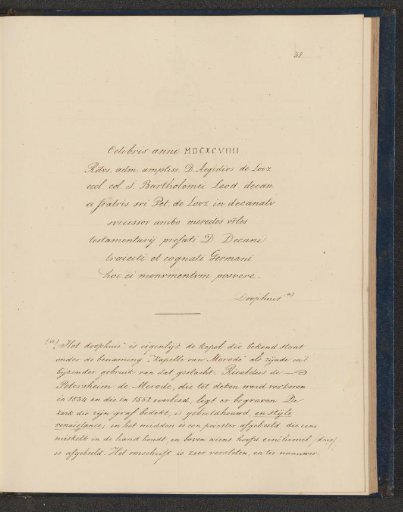 Octobris anni MDCXCVIIII
Rdvs. adm. ampliss. D. Aegidivs de Lovz
eccl. col. S. Bartholomei Leod. decan
a fratris svi Pet. de Lovz in decanatv
svccessor ambo meredes
testamentarij prefati D. Decani
traiecti et cognati Germani
hoc ei monvmentvm posvere.
Doophuis a)
(a) Het doophuis is eigenlijk de kapel die bekend staat
onder de benaming "Kapelle van Merode" als zijnde ten
bijzonder gebruik van dat geslacht. Ricaldus de
Petersheim de Merode, die tot deken werd verkoren
in 1534 en die in 1552 overleed, legt er begraven. De
zark die zijn graf bedekt, is gebeeldhouwd en style
renaissance; in het midden is een priester afgebeeld, die eene
miskelk in de hand houdt, en boven wiens hoofd een hemel
is afgebeeld. Het omschrift is zeer versleten, en ter nauwer